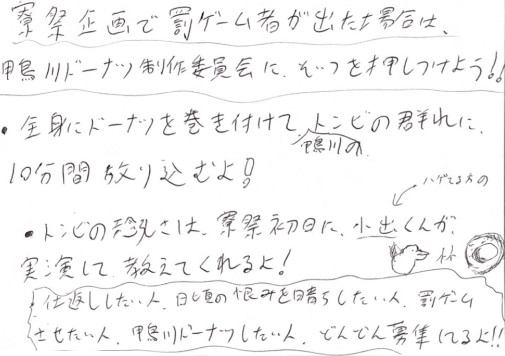 寮祭企画で罰ゲーム者が出た場合は、
鴨川ドーナツ制作委員会に、そいつを押しつけよう!!
・全身にドーナツを巻き付けて、トンビの群れに、
鴨川の
10分間放り込むよ!
ハゲてる方の
・トンビの恐さは、寮祭初日に、小出くんが、
実演して教えてくれるよ!
仕返ししたい人、日頃の恨みを晴らしたい人、罰ゲーム
させたい人、鴨川ドーナツしたい人、どんどん募集してるよ!!